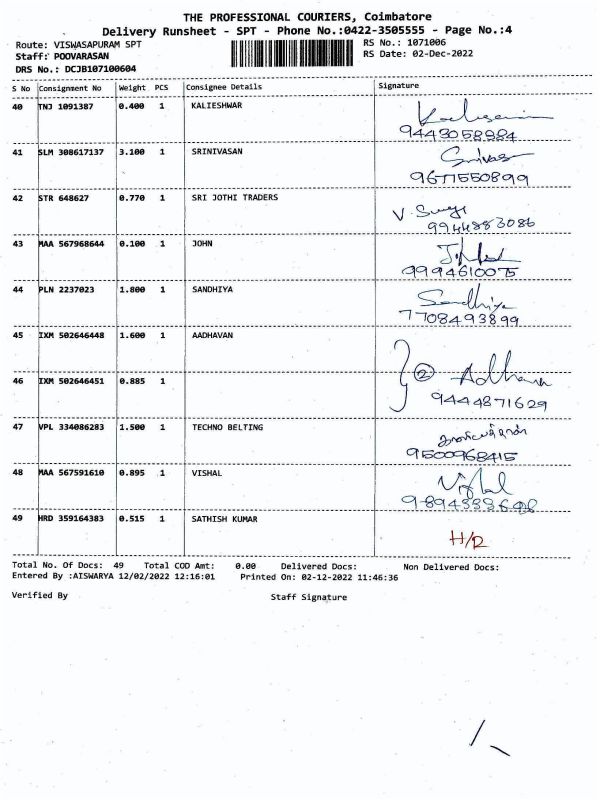 THE PROFESSIONAL COURIERS, Coimbatore
Delivery Runsheet - SPT - Phone No.:0422-3505555 - Page No.:4
Route: VISWASAPURAM SPT
RS No.: 1071006
Staff: POOVARASAN
RS Date: 02-Dec-2022
DRS No.: DCJB107100604
S No Consignment No Weight PCS Consignee Details Signature
40 TNJ 1091387 0.400 1 KALIESHWAR
9443058984
41 SLM 308617137 3.100 1 SRINIVASAN Srinivas
9677550899
42 STR 648627 0.770 1 SRI JOTHI TRADERS
9944883086
43 MAA 567968644 0.100 1 JOHN
9994610075
44 PLN 2237023 1.800 1 SANDHIYA Sandhiya
7708493899
45 IXM 502646448 1.600 1 AADHAVAN
46 IXM 502646451 0.885 1 } 2
9444871629
47 VPL 334086283 1.500 1 TECHNO BELTING
9500968415
48 MAA 567591610 0.895 1 VISHAL Vishal
49 HRD 359164383 0.515 1 SATHISH KUMAR
Total No. Of Docs: 49 Total COD Amt: 0.00 Delivered Docs: Non Delivered Docs:
Entered By :AISWARYA 12/02/2022 12:16:01 Printed On: 02-12-2022 11:46:36
Verified By Staff Signature